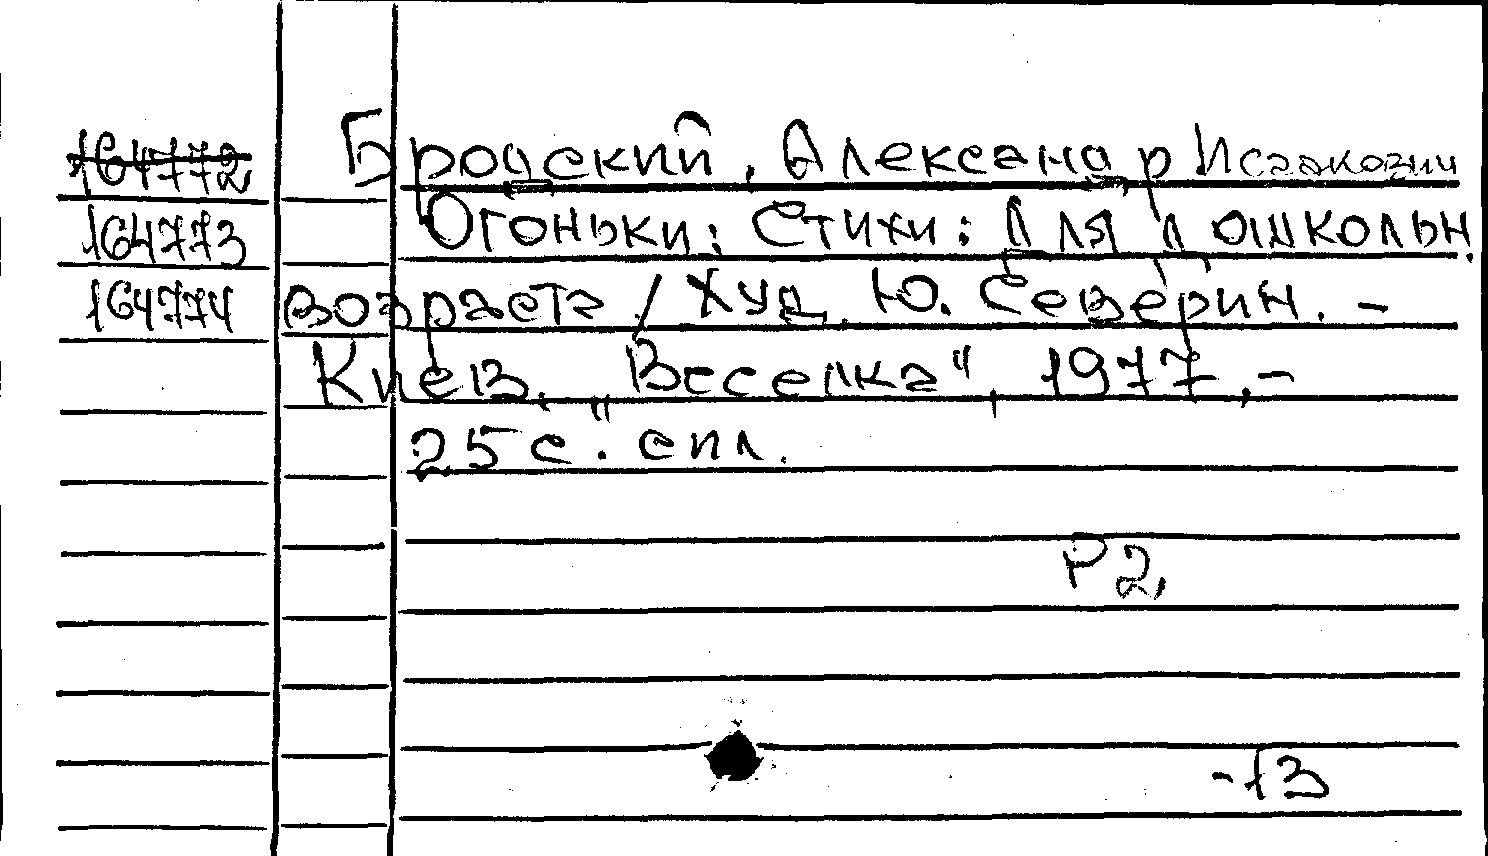 164772 Бродский, Александр Исаакович
164773 Огоньки: Стихи: Для дошкольн.
164774 возраста / Худ. Ю. Северин. –
Киев: „Веселка", 1977. –
25 с.: ил.
Р2
-13